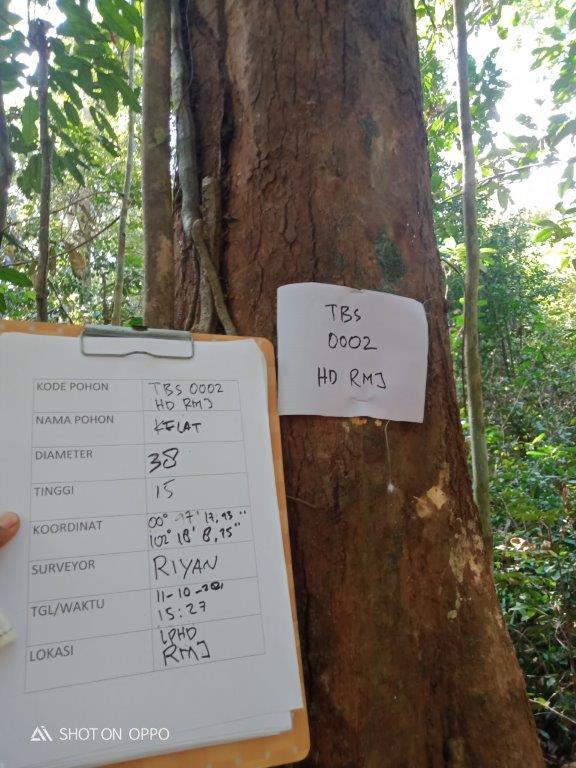 TBS
0002
HD RMJ
KODE POHON TBS 0002
HD RMJ
NAMA POHON KELAT
DIAMETER 38
TINGGI 15
KOORDINAT 00° 47' 17,93"
102° 18' 8,75"
SURVEYOR RIYAN
TGL/WAKTU 11-10-2021
15:27
LOKASI LPHD
RMJ
SHOT ON OPPO